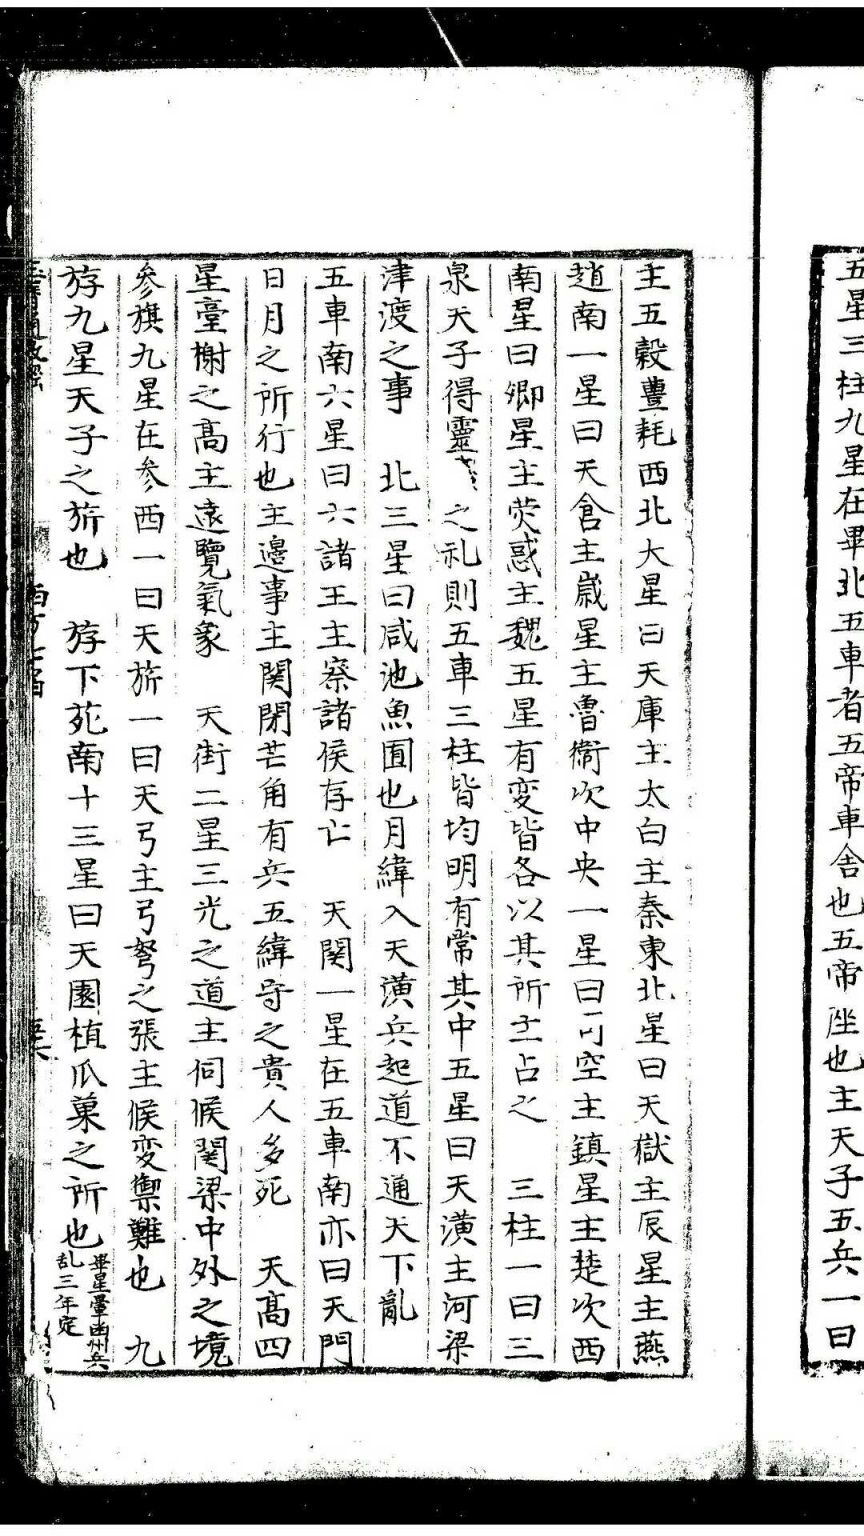 五星三柱九星在畢北五車者五帝車舎也五帝座也主天子五兵一曰
主五穀豊耗西北大星曰天庫主太白主秦東北星曰天獄主辰星主燕
趙南一星曰天倉主歲星主魯衛次中央一星曰司空主鎮星主楚次西
南星曰卿星主熒惑主魏五星有変皆各以其所主占之 三柱一曰三
泉天子得靈之礼則五車三柱皆均明有常其中五星曰天潢主河梁
津渡之事 北三星曰咸池魚囿也月緯入天潢兵起道不通天下亂
五車南六星曰六諸王主察諸侯存亡 天関一星在五車南亦曰天門
日月之所行也主邊事主関閉芒角有兵五緯守之貴人多死 天髙四
星臺榭之髙主遠覽氣象 天街二星三光之道主伺候関梁中外之境
參旗九星在参西一曰天旂一曰天弓主弓弩之張主候変禦難也 九
斿九星天子之旂也 斿下苑南十三星曰天園植瓜菓之所也
畢星暈幽州兵
乱三年定
西方七宿